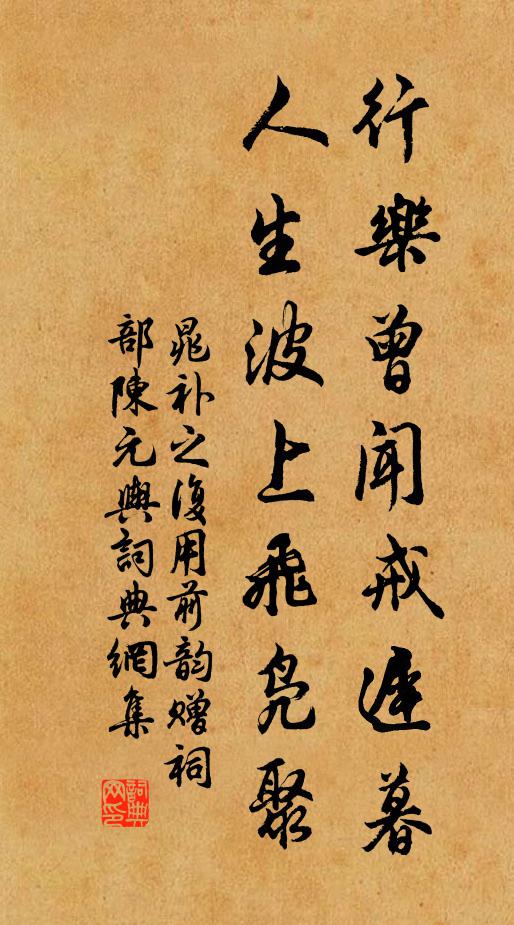 行樂曾聞戒遲暮
人生波上飛鳧聚
晁补之復用前韵赠祠
部陳元輿詞典網集
詞典
网印